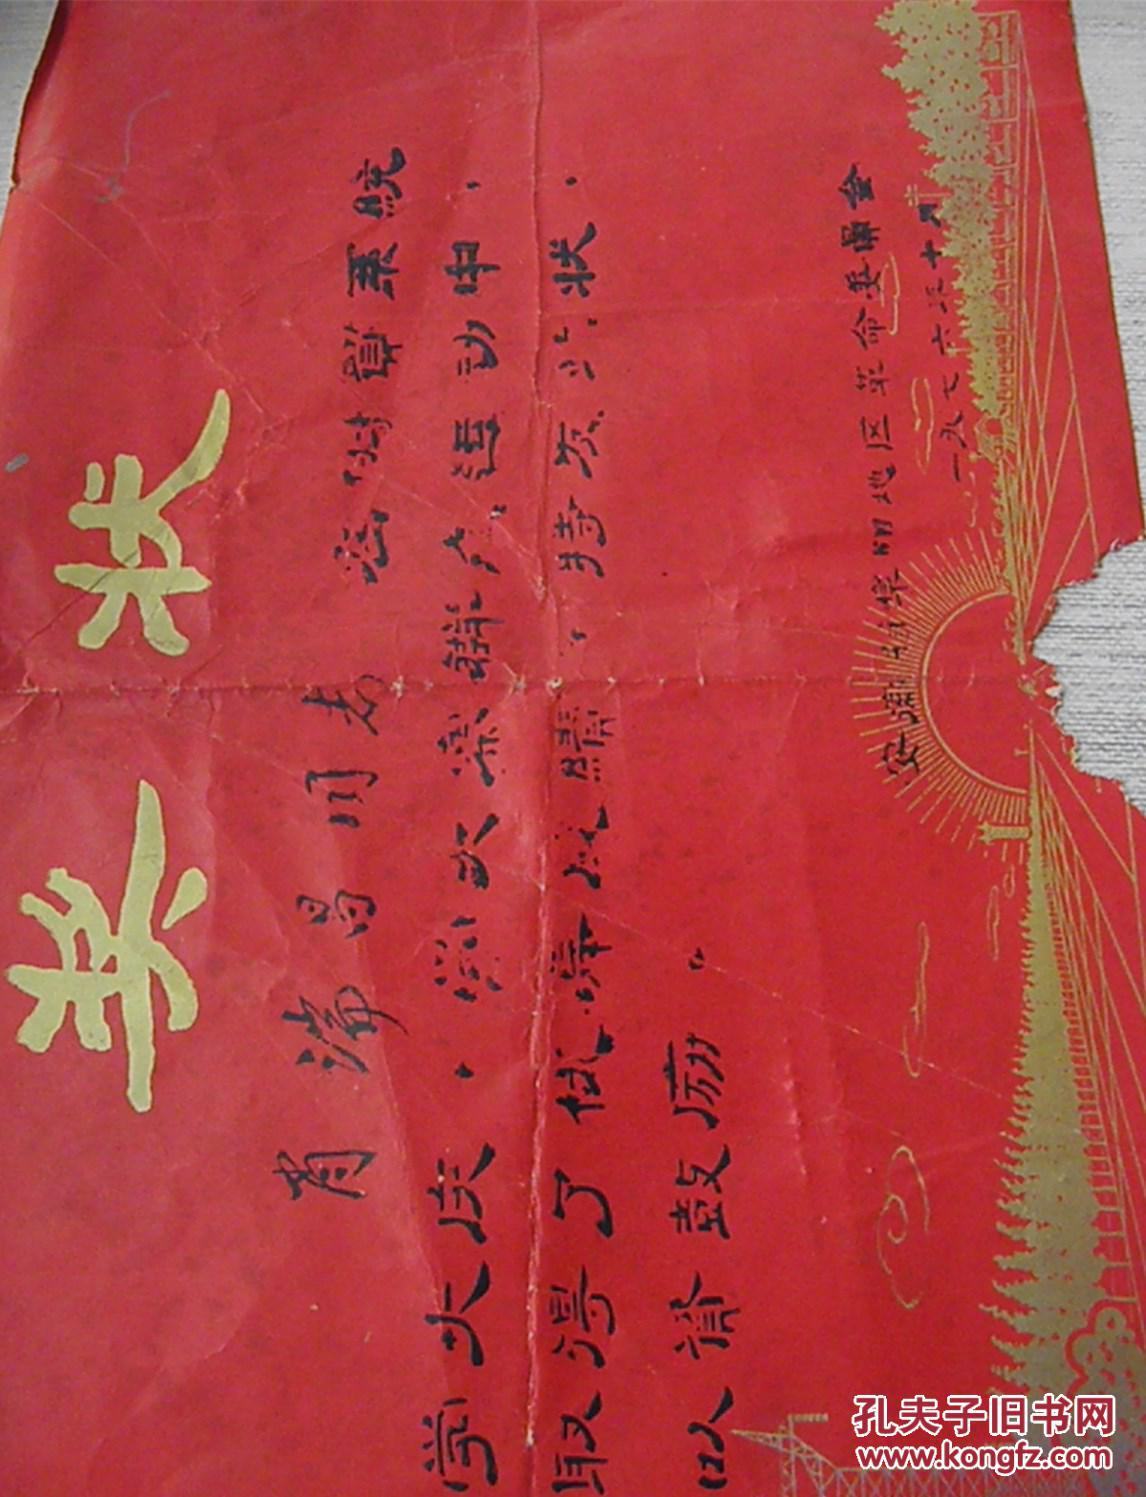 奖状
肖满昌同志 在财贸系统
学大庆、学大寨群众运动中、
取得了优异成绩。特发此状、
以资鼓励。
安徽
地区革命委员会
一九七六年十月
孔夫子旧书网
www.kongfz.com